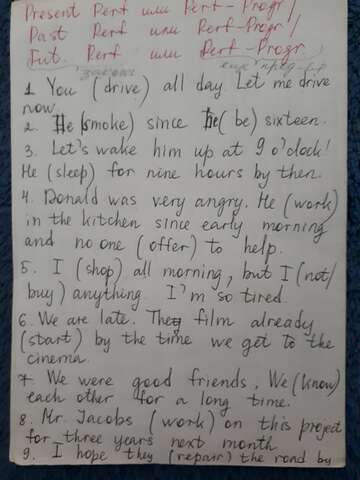 Present Perf или Perf-Progr/
Past Perf или Perf-Progr/
Fut. Perf или Perf-Progr.
1. You (drive) all day. Let me drive
now.
2. He (smoke) since he (be) sixteen.
3. Let's wake him up at 9 o'clock!
He (sleep) for nine hours by then.
4. Donald was very angry. He (work)
in the kitchen since early morning
and no one (offer) to help.
5. I (shop) all morning, but I (not/
buy) anything. I'm so tired.
6. We are late. The film already
(start) by the time we get to the
cinema.
7. We were good friends, We (know)
each other for a long time.
8. Mr. Jacobs (work) on this project
for three years next month.
9. I hope they (repair) the road by